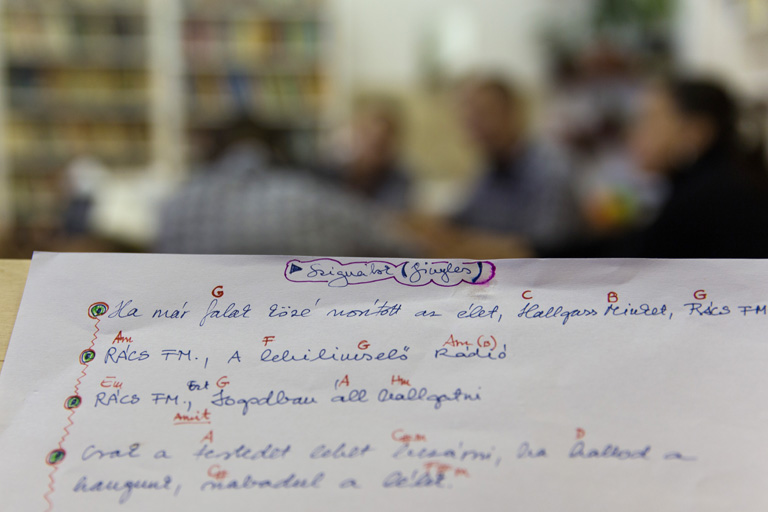 ▶ Szignálok (Jingles)
G C B G
Ha már falak közé szorított az élet, Hallgass Minket, RÁCS FM
Am F G Am (G)
RÁCS FM., A lehiliuselő Rádió
Em G A Hm
RÁCS FM., Ezt Jogodban áll hallgatni
Amit
A D
Csak a testedet lehet bezárni, ha hallod a
hangunk, szabadul a lélek.